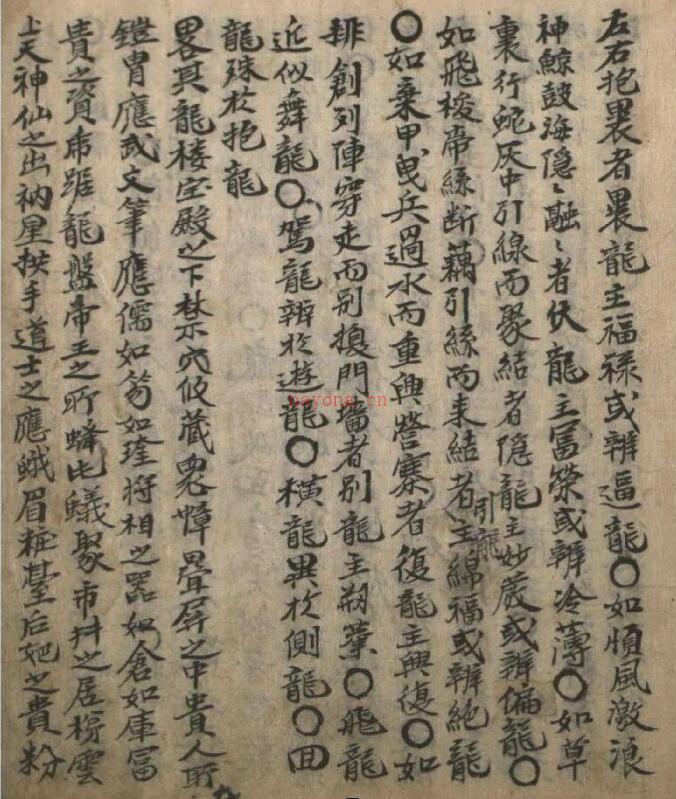 左右抱裹者裹龍主福祿或辨逼龍〇如順風激浪
神鯨鼓海隱〻融〻者伏龍主冨榮或辨冷薄〇如草
裏行蛇灰中引線而聚結者隐龍主妙歳或辨偏龍〇
如飛梭帶絲斷藕引絲而来結者引龍主綿福或辨絕龍
〇如棄甲曳兵過水而重興營寨者復龍主興復〇如
排創列陣穿走而别換門墻者别龍主刱業〇飛龍
近似舞龍〇鴐龍辨於遊龍〇横龍異於側龍〇回
龍殊於抱龍
畧其龍楼宝殿之下禁穴伩藏衆嶂疊屏之中貴人所
鎧胄應武文筆應儒如笏如珪將相之器如倉如庫冨
貴之資虎踞龍盤帝王之所蜂屯蟻聚市井之居梯雲
上天神仙之出衲星拱手道士之應蛾眉粧䑓后妃之貴粉
nayong.cn